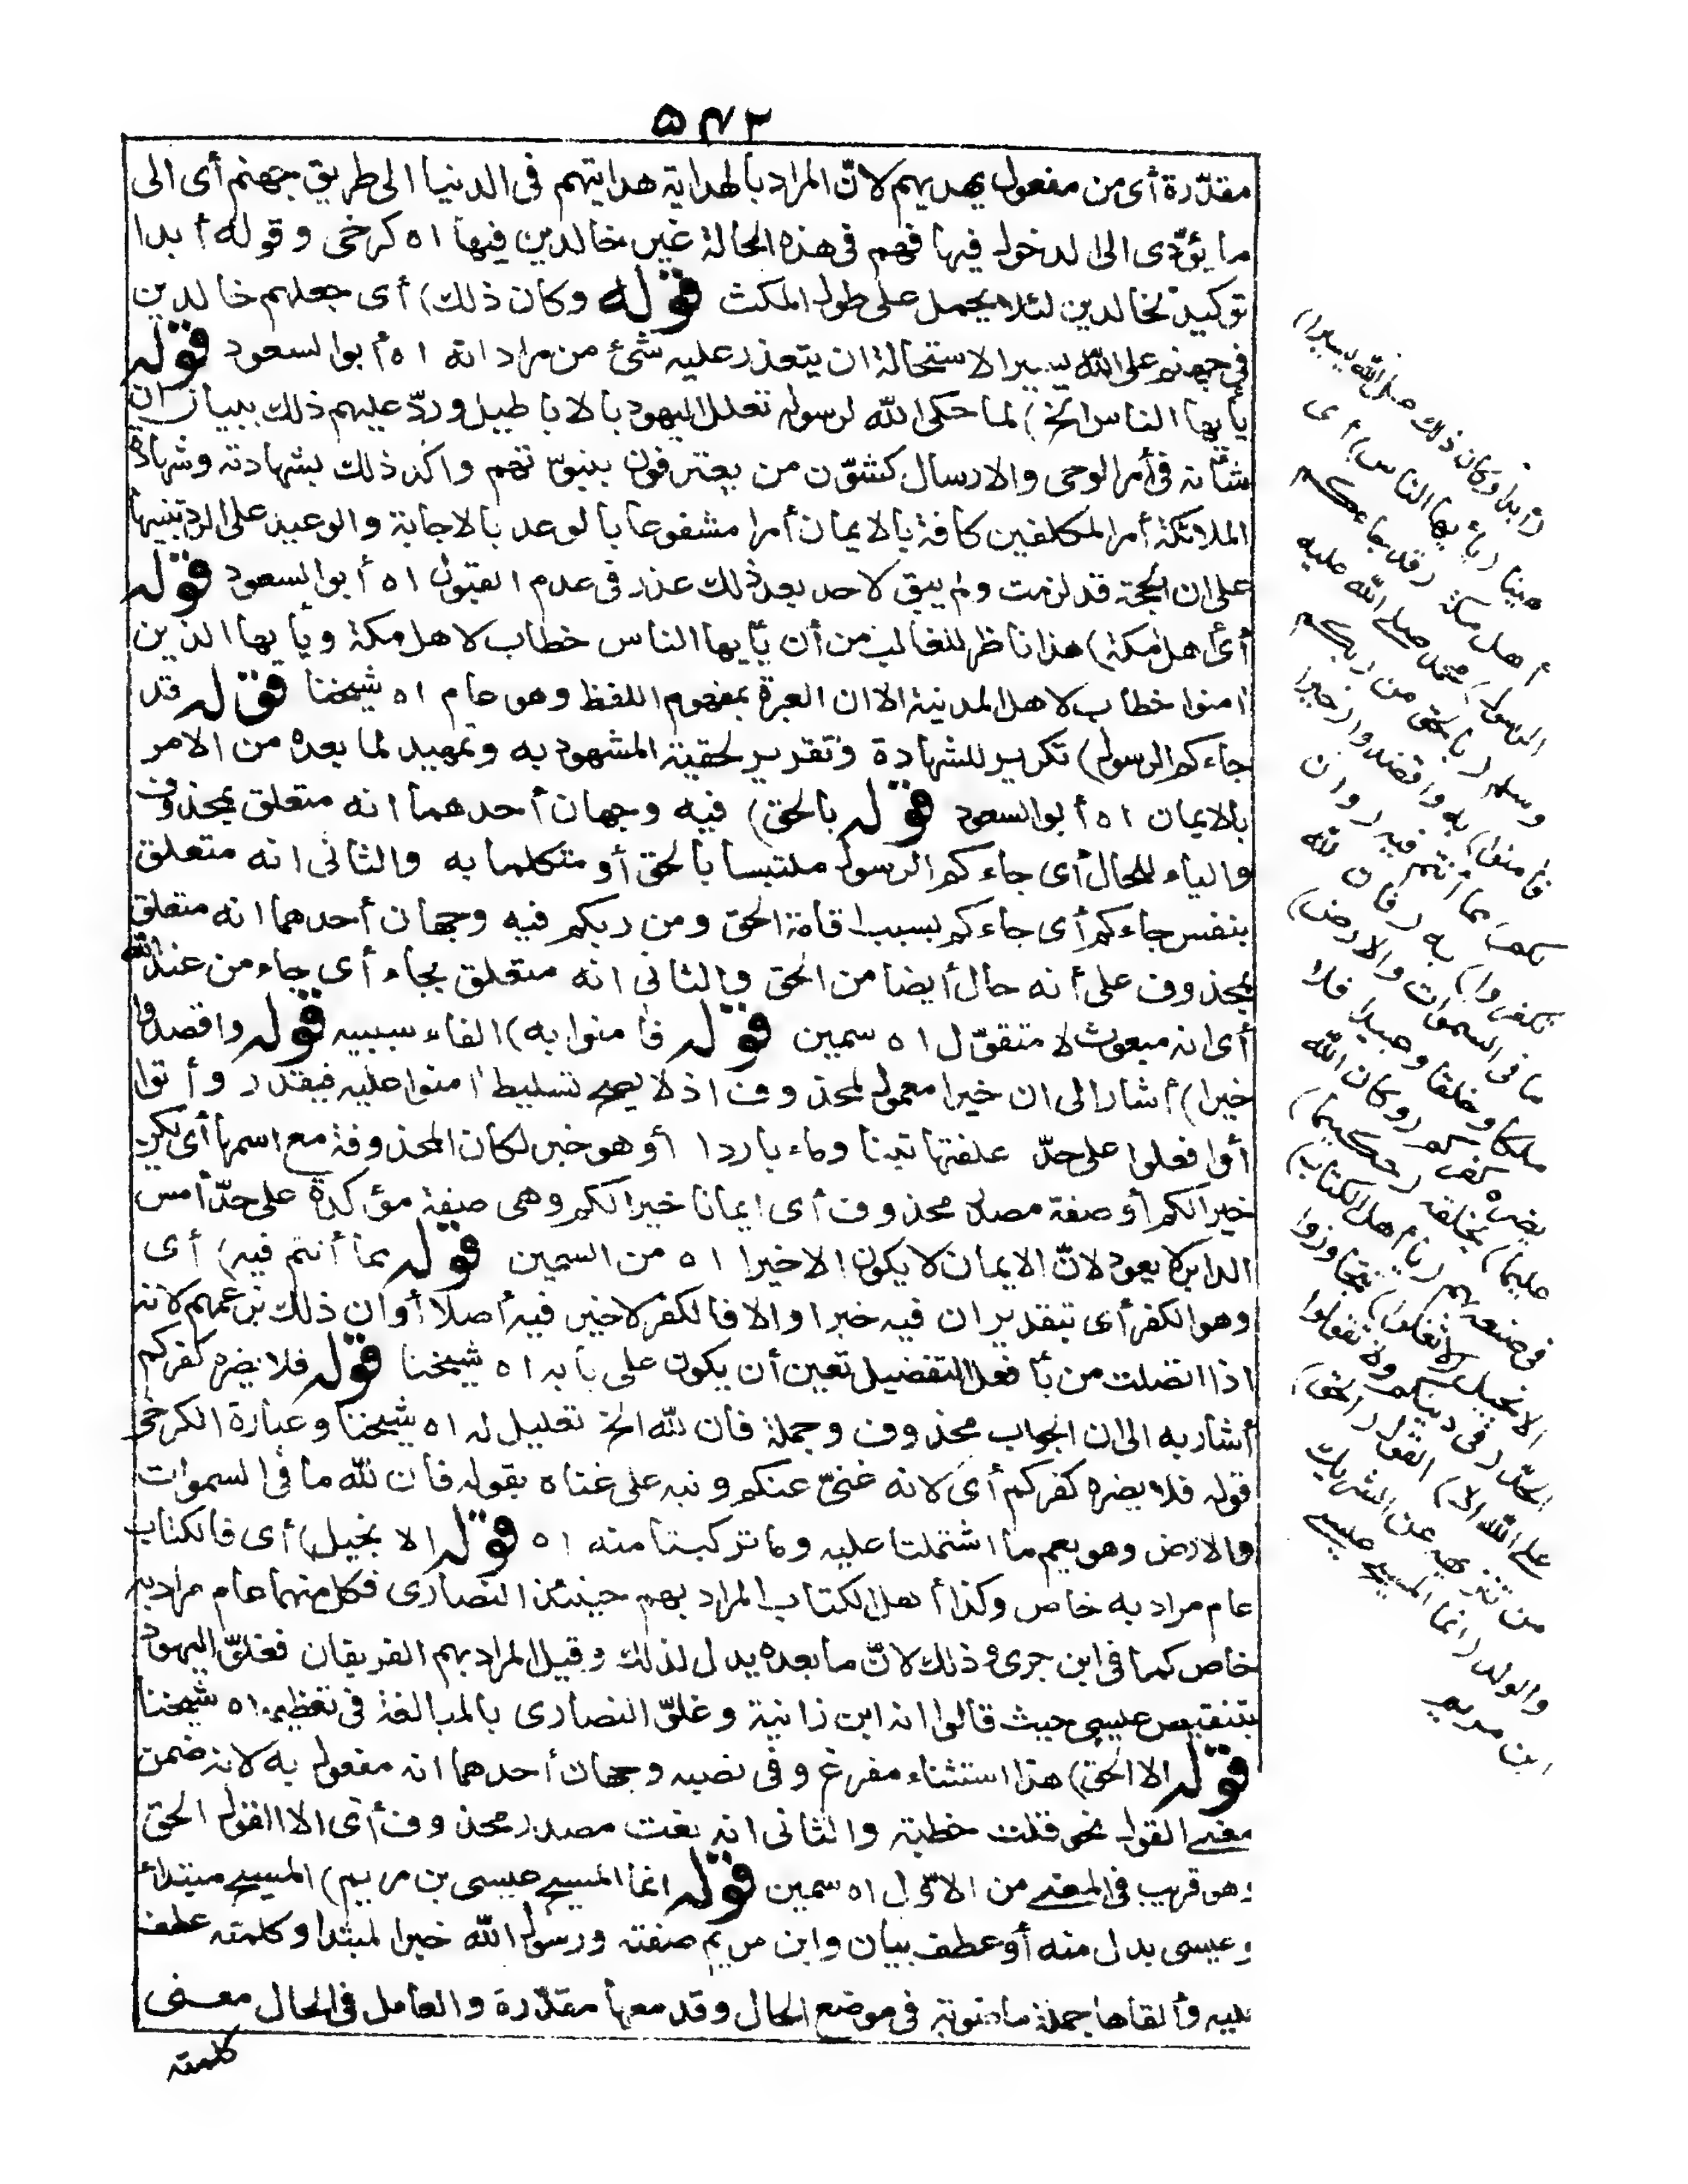 ٥٤٣
مقدّرة أى من مفعول يهديهم لانّ المراد بالهداية هدايتهم فى الدنيا الى طريق جهنم أى الى
ما يؤدى الى الدخول فيها فهم فى هذه الحالة غير خالدين فيها اه كرخى وقوله أبدا
توكيد لخالدين لئلا يحمل على طول المكث قوله وكان ذلك) أى جعلهم خالدين
فى جهنم على الله يسيرا لاستحالة ان يتعذر عليه شئ من مراداته اه أبو السعود قوله
يأيها الناس الخ) لما حكى الله لرسوله تعلل اليهود بالاباطيل وردّ عليهم ذلك ببيان ان
شأنه فى أمر الوحى والارسال كشؤن من يعترفون بنبوّتهم واكد ذلك بشهادته وشهادة
الملائكة أمر المكلفين كافة بالايمان أمرا مشفوعا بالوعد بالاجابة والوعيد على الرد تنبيها
على ان الحجة قد لزمت ولم يبق لاحد بعد ذلك عذر فى عدم القبول اه أبو السعود قوله
أى أهل مكة) هذا ناظر للغالب من أن يأيها الناس خطاب لاهل مكة ويأيها الذين
آمنوا خطاب لاهل المدينة الا ان العبرة بمفهوم اللفظ وهو عام اه شيخنا قوله قد
جاءكم الرسول) تكرير للشهادة وتقرير لحقية المشهود به وتمهيد لما بعده من الامر
بالايمان اه أبو السعود قوله بالحق) فيه وجهان أحدهما انه متعلق بمحذوف
والباء للحال أى جاءكم الرسول ملتبسا بالحق أو متكلما به والثانى انه متعلق
بنفس جاءكم أى جاءكم بسبب اقامة الحق ومن ربكم فيه وجهان أحدهما انه متعلق
بمحذوف على أنه حال أيضا من الحق والثانى انه متعلق بجاء أى جاء من عند الله
أى انه مبعوث لا متقوّل اه سمين قوله فآمنوا به) الفاء سببيه قوله واقصدوا
خيرا) أشار الى ان خيرا معمول لمحذوف اذ لا يصح تسليط آمنوا عليه فيقدر وأتوا
أو افعلوا على حدّ علفتها تبنا وماء باردا أو هو خبر لكان المحذوفة مع اسمها أى يكن
خيرا لكم أو صفة مصدر محذوف أى ايمانا خيرا لكم وهى صفة مؤكدة على حدّ أمس
الدابر لا يعود لانّ الايمان لا يكون الا خيرا اه من السمين قوله بما أنتم فيه) أى
وهو الكفر أى بتقدير ان فيه خيرا والا فالكفر لا خير فيه أصلا أو ان ذلك بزعمهم لانه
اذا اتصلت من بأفعل التفضيل تعين أن يكون على بابه اه شيخنا قوله فلا يضره كفركم
أشار به الى ان الجواب محذوف وجملة فان لله الخ تعليل له اه شيخنا وعبارة الكرخى
قوله فلا يضره كفركم أى لانه غنىّ عنكم ونبه على غناه بقوله فان لله ما فى السموات
والارض وهو يعم ما اشتملتا عليه وما تركبتا منه اه قوله الانجيل) أى فالكتاب
عام مراد به خاص وكذا أهل الكتاب المراد بهم حينئذ النصارى فكل منهما عام مراد به
خاص كما فى ابن جزى وذلك لانّ ما بعده يدل لذلك وقيل المراد بهم الفريقان فغلوّ اليهود
بتنقيص عيسى حيث قالوا انه ابن زانية وغلوّ النصارى بالمبالغة فى تعظيمه اه شيخنا
قوله الا الحق) هذا استثناء مفرغ وفى نصبه وجهان أحدهما انه مفعول به لانه ضمن
معنى القول نحو قلت خطبة والثانى انه نعت مصدر محذوف أى الا القول الحق
وهو قريب فى المعنى من الاوّل اه سمين قوله انما المسيح عيسى بن مريم) المسيح مبتدأ
وعيسى بدل منه أو عطف بيان وابن مريم صفته ورسول الله خبر المبتدا وكلمته عطف
عليه وألقاها جملة ماضوية فى موضع الحال وقد معها مقدّرة والعامل فى الحال معنى
كلمته
أبدا وكان ذلك على الله يسيرا)
هينا (يأيها الناس) أى
أهل مكة (قد جاءكم
الرسول) محمد صلى الله عليه
وسلم (بالحق من ربكم
فآمنوا) به واقصدوا (خيرا
لكم) مما أنتم فيه (وان
تكفروا) به (فان لله
ما فى السموات والارض)
ملكا وخلقا وعبيدا فلا
يضره كفركم (وكان الله
عليما) بخلقه (حكيما)
فى صنعه بهم (يأهل الكتاب)
الانجيل (لا تغلوا) تتجاوزوا
الحدّ (فى دينكم ولا تقولوا
على الله الا) القول (الحق)
من تنزيهه عن الشريك
والولد (انما المسيح عيسى
ابن مريم